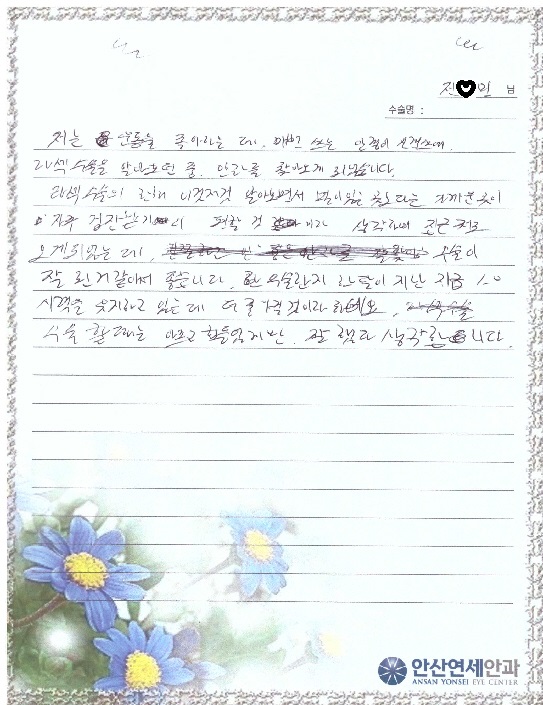 진 민 님
수술명 :
저는 운동을 좋아하는 데, 매번 쓰는 안경이 신경쓰여
라섹수술을 알아보던 중, 안과를 찾아오게 되었습니다.
라섹수술의 관해 이것저것 알아보면서 가까운곳이
자주 검진받기 편할 것 이라 생각하여
오게되었는데, 수술이
잘 된거같아서 좋습니다. 수술한지 한달이 지난 지금 1.0
시력을 유지하고 있는데 더 좋아질 것이라 하네요.
수술 할때는 아프고 힘들었지만, 잘 했다 생각합니다.
안산연세안과
ANSAN YONSEI EYE CENTER